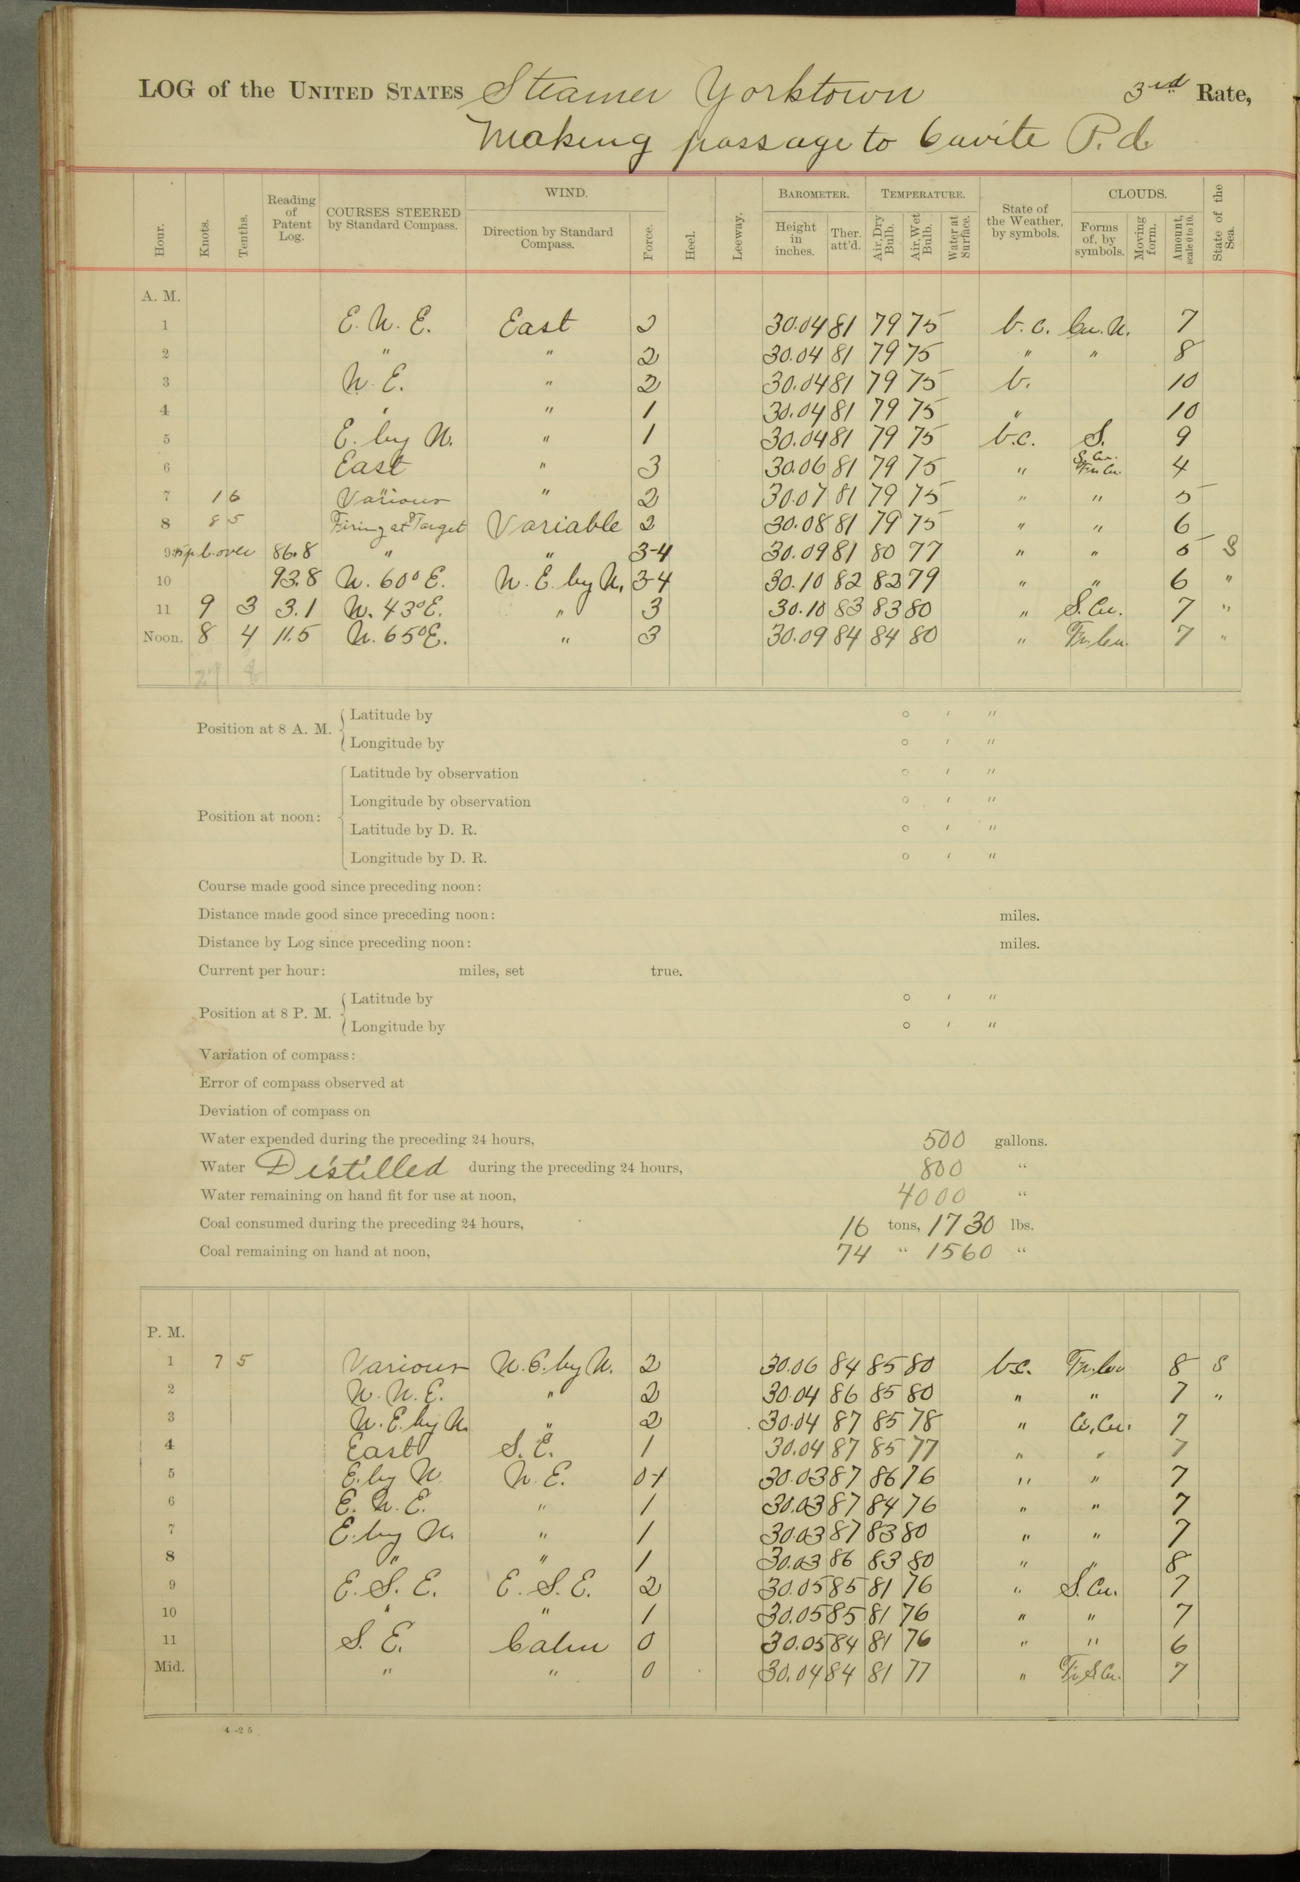 LOG of the UNITED STATES Steamer Yorktown 3rd Rate,
Making passage to Cavite P.I.
Hour. Knots. Tenths. Reading of Patent Log. COURSES STEERED by Standard Compass. WIND. Direction by Standard Compass. Force. Heel. Leeway. BAROMETER. Height in inches. Ther. att'd. TEMPERATURE. Air, Dry Bulb. Air, Wet Bulb. Water at Surface. State of the Weather, by symbols. CLOUDS. Forms of, by symbols. Moving form. Amount, scale 0 to 10. State of the Sea.
A. M.
1 E. N. E. East 2 30.04 81 79 75 b. c. Cu. N. 7
2 " " 2 30.04 81 79 75 " " 8
3 N. E. " 2 30.04 81 79 75 b. 10
4 " " 1 30.04 81 79 75 " 10
5 E. by N. " 1 30.04 81 79 75 b.c. S. 9
6 East " 3 30.06 81 79 75 " 4
7 1 6 Various " 2 30.07 81 79 75 " " 5
8 8 5 Firing at Target Variable 2 30.08 81 79 75 " " 6
9 over 86.8 " " 3-4 30.09 81 80 77 " " 5 S
10 93.8 N. 60° E. N. E. by N. 3-4 30.10 82 82 79 " " 6 "
11 9 3 3.1 N. 43° E. " 3 30.10 83 83 80 " S. Cu. 7 "
Noon. 8 4 11.5 N. 65° E. " 3 30.09 84 84 80 " 7 "
27 8
Position at 8 A. M. Latitude by ° ' "
Longitude by ° ' "
Position at noon: Latitude by observation ° ' "
Longitude by observation ° ' "
Latitude by D. R. ° ' "
Longitude by D. R. ° ' "
Course made good since preceding noon:
Distance made good since preceding noon: miles.
Distance by Log since preceding noon: miles.
Current per hour: miles, set true.
Position at 8 P. M. Latitude by ° ' "
Longitude by ° ' "
Variation of compass:
Error of compass observed at
Deviation of compass on
Water expended during the preceding 24 hours, 500 gallons.
Water Distilled during the preceding 24 hours, 800 "
Water remaining on hand fit for use at noon, 4000 "
Coal consumed during the preceding 24 hours, 16 tons, 1730 lbs.
Coal remaining on hand at noon, 74 " 1560 "
P. M.
1 7 5 Various N. E. by N. 2 30.06 84 85 80 b.c. 8 S
2 N. N. E. " 2 30.04 86 85 80 " " 7 "
3 N. E. by N. " 2 30.04 87 85 78 " Ci. Cu. 7
4 East S. E. 1 30.04 87 85 77 " " 7
5 E. by N. N. E. 0-1 30.03 87 86 76 " " 7
6 E. N. E. " 1 30.03 87 84 76 " " 7
7 E. by N. " 1 30.03 87 83 80 " " 7
8 " " 1 30.03 86 83 80 " " 8
9 E. S. E. E. S. E. 2 30.05 85 81 76 " S. Cu. 7
10 " " 1 30.05 85 81 76 " " 7
11 S. E. Calm 0 30.05 84 81 76 " " 6
Mid. " " 0 30.04 84 81 77 " 7
4-25